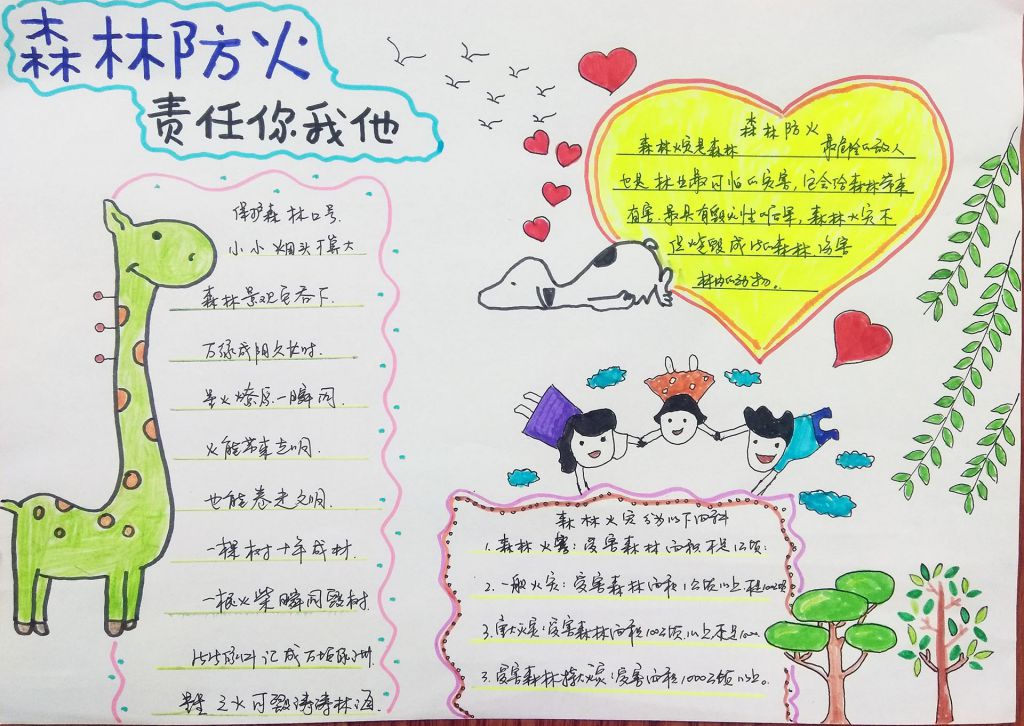 森林防火
责任你我他
保护森林口号.
小小烟头不算大
森林景观它吞下.
万绿成阴久长时.
星火燎原一瞬间.
火能带来文明.
也能卷走文明.
一棵树十年成材.
一根火柴瞬间毁树.
星星之火可毁涛涛林海
森林防火
森林火灾是森林 最危险的敌人
也是林业最可怕的灾害,它会给森林带来
有害.最具有毁灭性后果,森林火灾不
但烧毁成片的森林伤害
林内的动物。
森林火灾分为以下四种
1.森林火警:受害森林面积不足1公顷:
2.一般火灾:受害森林面积1公顷以上.不足100公顷
3.重大火灾:受害森林面积100公顷.以上不足1000
3.受害森林特大火灾:受害面积1000公顷以上。